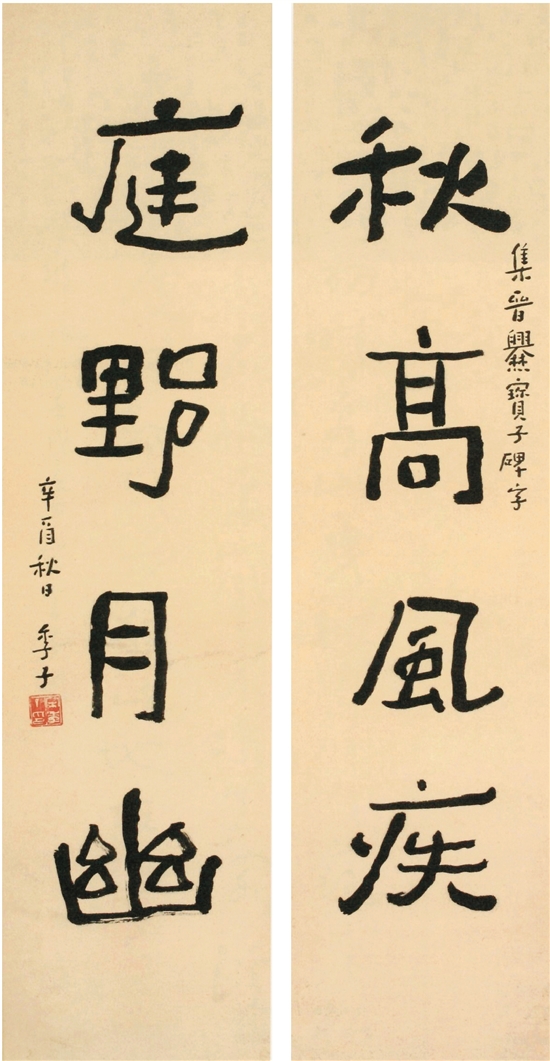 集晋爨寶子碑字
秋髙風疾
庭野月幽
辛酉秋日 季子